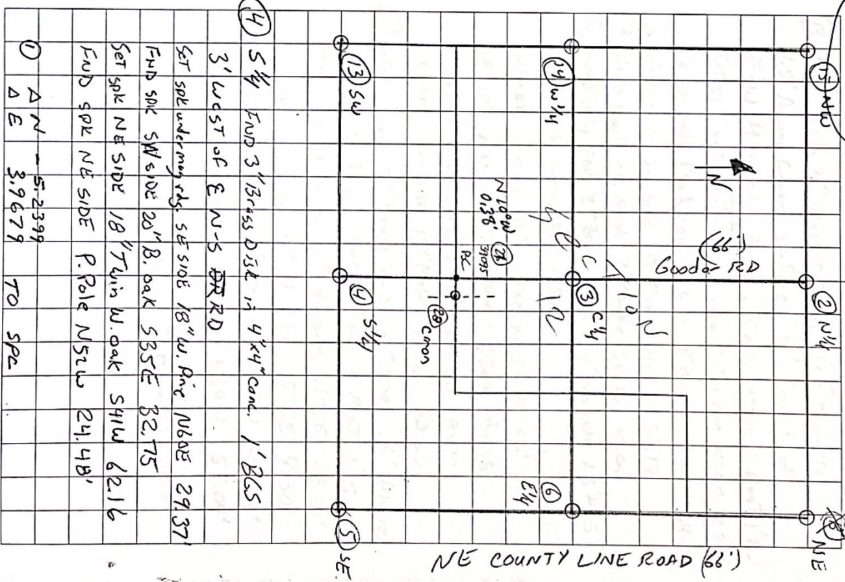 15 NW
2 N 1/4
8 NE
N
Gooder RD
(66')
SEC 12
T 10 N
14 W 1/4
3 C 1/4
6 E 1/4
N20°W
0.38'
28
39095
PC
28
cmon
13 SW
4 S 1/4
5 SE
NE COUNTY LINE ROAD (66')
4 S 1/4 FND 3" Brass Disk in 4"x4" conc. 1' BGS
3' West of ℄ N-S RD
SET spk under mon rdg. SE SIDE 18" W. Pine N60E 29.37'
FND SPK SW SIDE 20" B. oak S35E 32.75
SET SPK NE SIDE 18" Twin W. oak S41W 62.16
FND SPK NE SIDE P. Pole N52W 24.48'
1 Δ N -5.2399
Δ E 3.9679 TO SPC